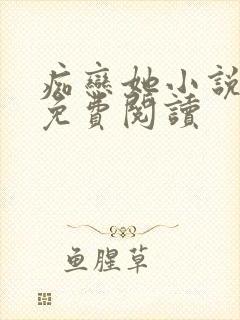 痴戀她小説
免費閱讀
鱼腥草